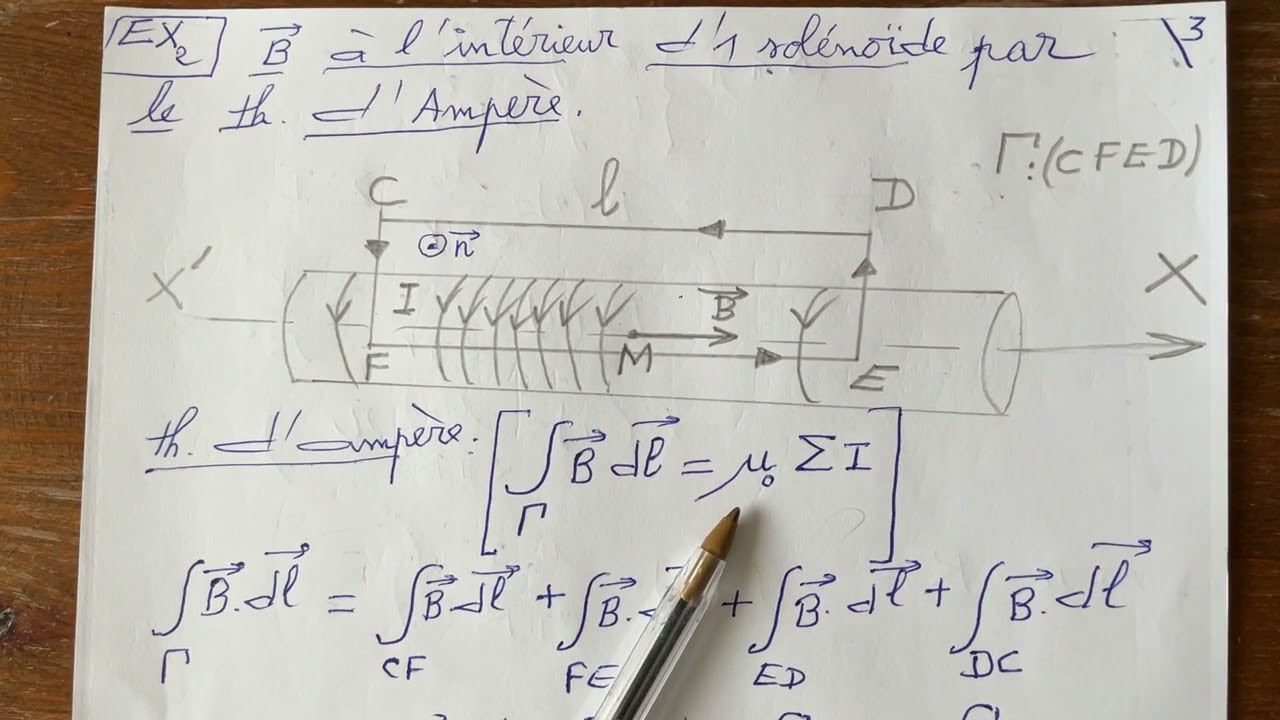 EX₂ B⃗ à l'intérieur d'1 solénoïde par \3
le th. d'Ampère.
Γ:(CFED)
C l D
⊙n⃗
X' I B⃗ X
F M E
th. d'ampère: [∫_Γ B⃗ dl⃗ = μ₀ ΣI]
∫_Γ B⃗.dl⃗ = ∫_CF B⃗ dl⃗ + ∫_FE B⃗. + ∫_ED B⃗. dl⃗ + ∫_DC B⃗. dl⃗